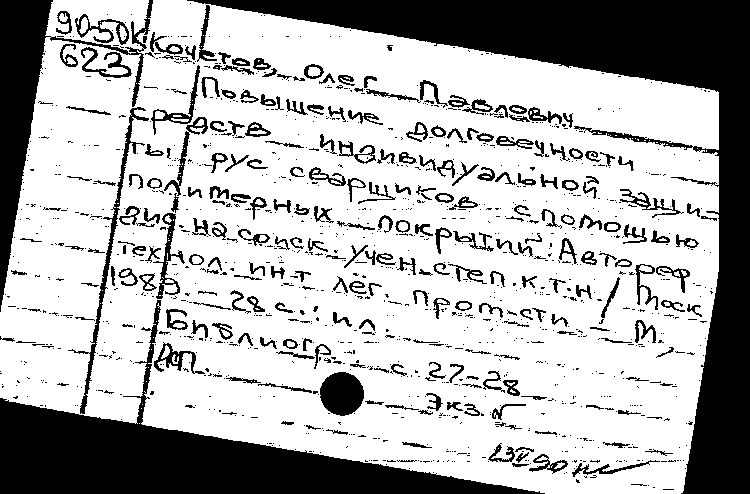 90-50К Кочетов, Олег Павлович
623
Повышение долговечности
средств индивидуальной защи-
ты рус сварщиков с помощью
полимерных покрытий: Автореф
дис на соиск. учен. степ. к.т.н. / Моск
технол. ин-т лёг. пром-сти – М.,
1989. – 28 с.: ил.
Библиогр.: с. 27-28
Экз. N